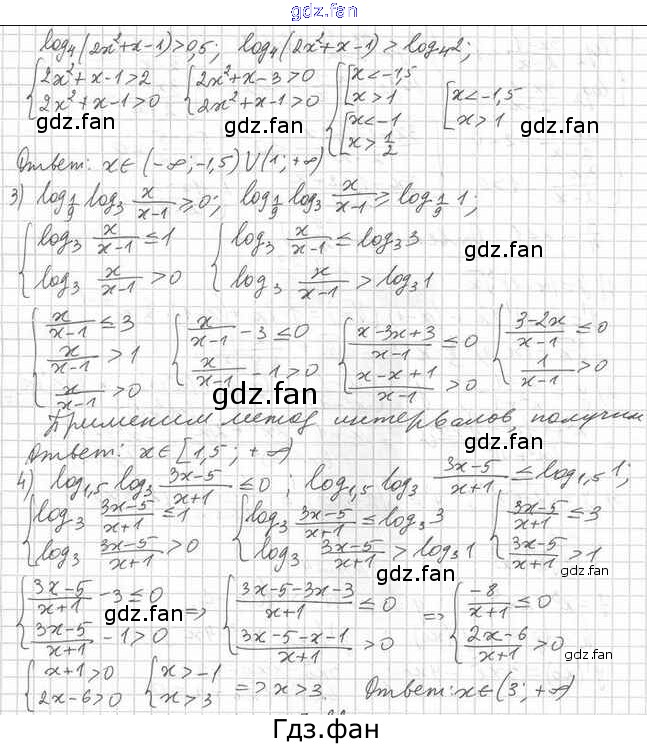 gdz.fan
log₄(2x²+x-1)>0,5; log₄(2x²+x-1)>log₄2;
{2x²+x-1>2 {2x²+x-3>0 {[x<-1,5 [x<-1,5
{2x²+x-1>0 {2x²+x-1>0 {[x>1 [x>1
{[x<-1
{[x>1/2
gdz.fan gdz.fan gdz.fan
Ответ: x∈(-∞;-1,5)∪(1;+∞)
3) log_{1/9} log₃ x/(x-1) ≥0; log_{1/9} log₃ x/(x-1) ≥ log_{1/9} 1;
{log₃ x/(x-1) ≤1 {log₃ x/(x-1) ≤ log₃3
gdz.fan
{log₃ x/(x-1) >0 {log₃ x/(x-1) > log₃1
{x/(x-1) ≤3 {x/(x-1) -3≤0 {(x-3x+3)/(x-1) ≤0 {(3-2x)/(x-1) ≤0
{x/(x-1) >1 {x/(x-1) -1>0 {(x-x+1)/(x-1) >0 {1/(x-1) >0
{x/(x-1) >0
gdz.fan
Применим метод интервалов, получим
Ответ: x∈[1,5; +∞)
gdz.fan
4) log₁,₅ log₃ (3x-5)/(x+1) ≤0, log₁,₅ log₃ (3x-5)/(x+1) ≤ log₁,₅1;
{log₃ (3x-5)/(x+1) ≤1 {log₃ (3x-5)/(x+1) ≤ log₃3 {(3x-5)/(x+1) ≤3
{log₃ (3x-5)/(x+1) >0 {log₃ (3x-5)/(x+1) > log₃1 {(3x-5)/(x+1) >1
gdz.fan
{(3x-5)/(x+1) -3≤0 => {(3x-5-3x-3)/(x+1) ≤0 => {-8/(x+1) ≤0
gdz.fan
{(3x-5)/(x+1) -1>0 {(3x-5-x-1)/(x+1) >0 {(2x-6)/(x+1) >0
gdz.fan
{x+1>0 {x>-1
{2x-6>0 {x>3 => x>3. Ответ: x∈(3; +∞)
Гдз.фан